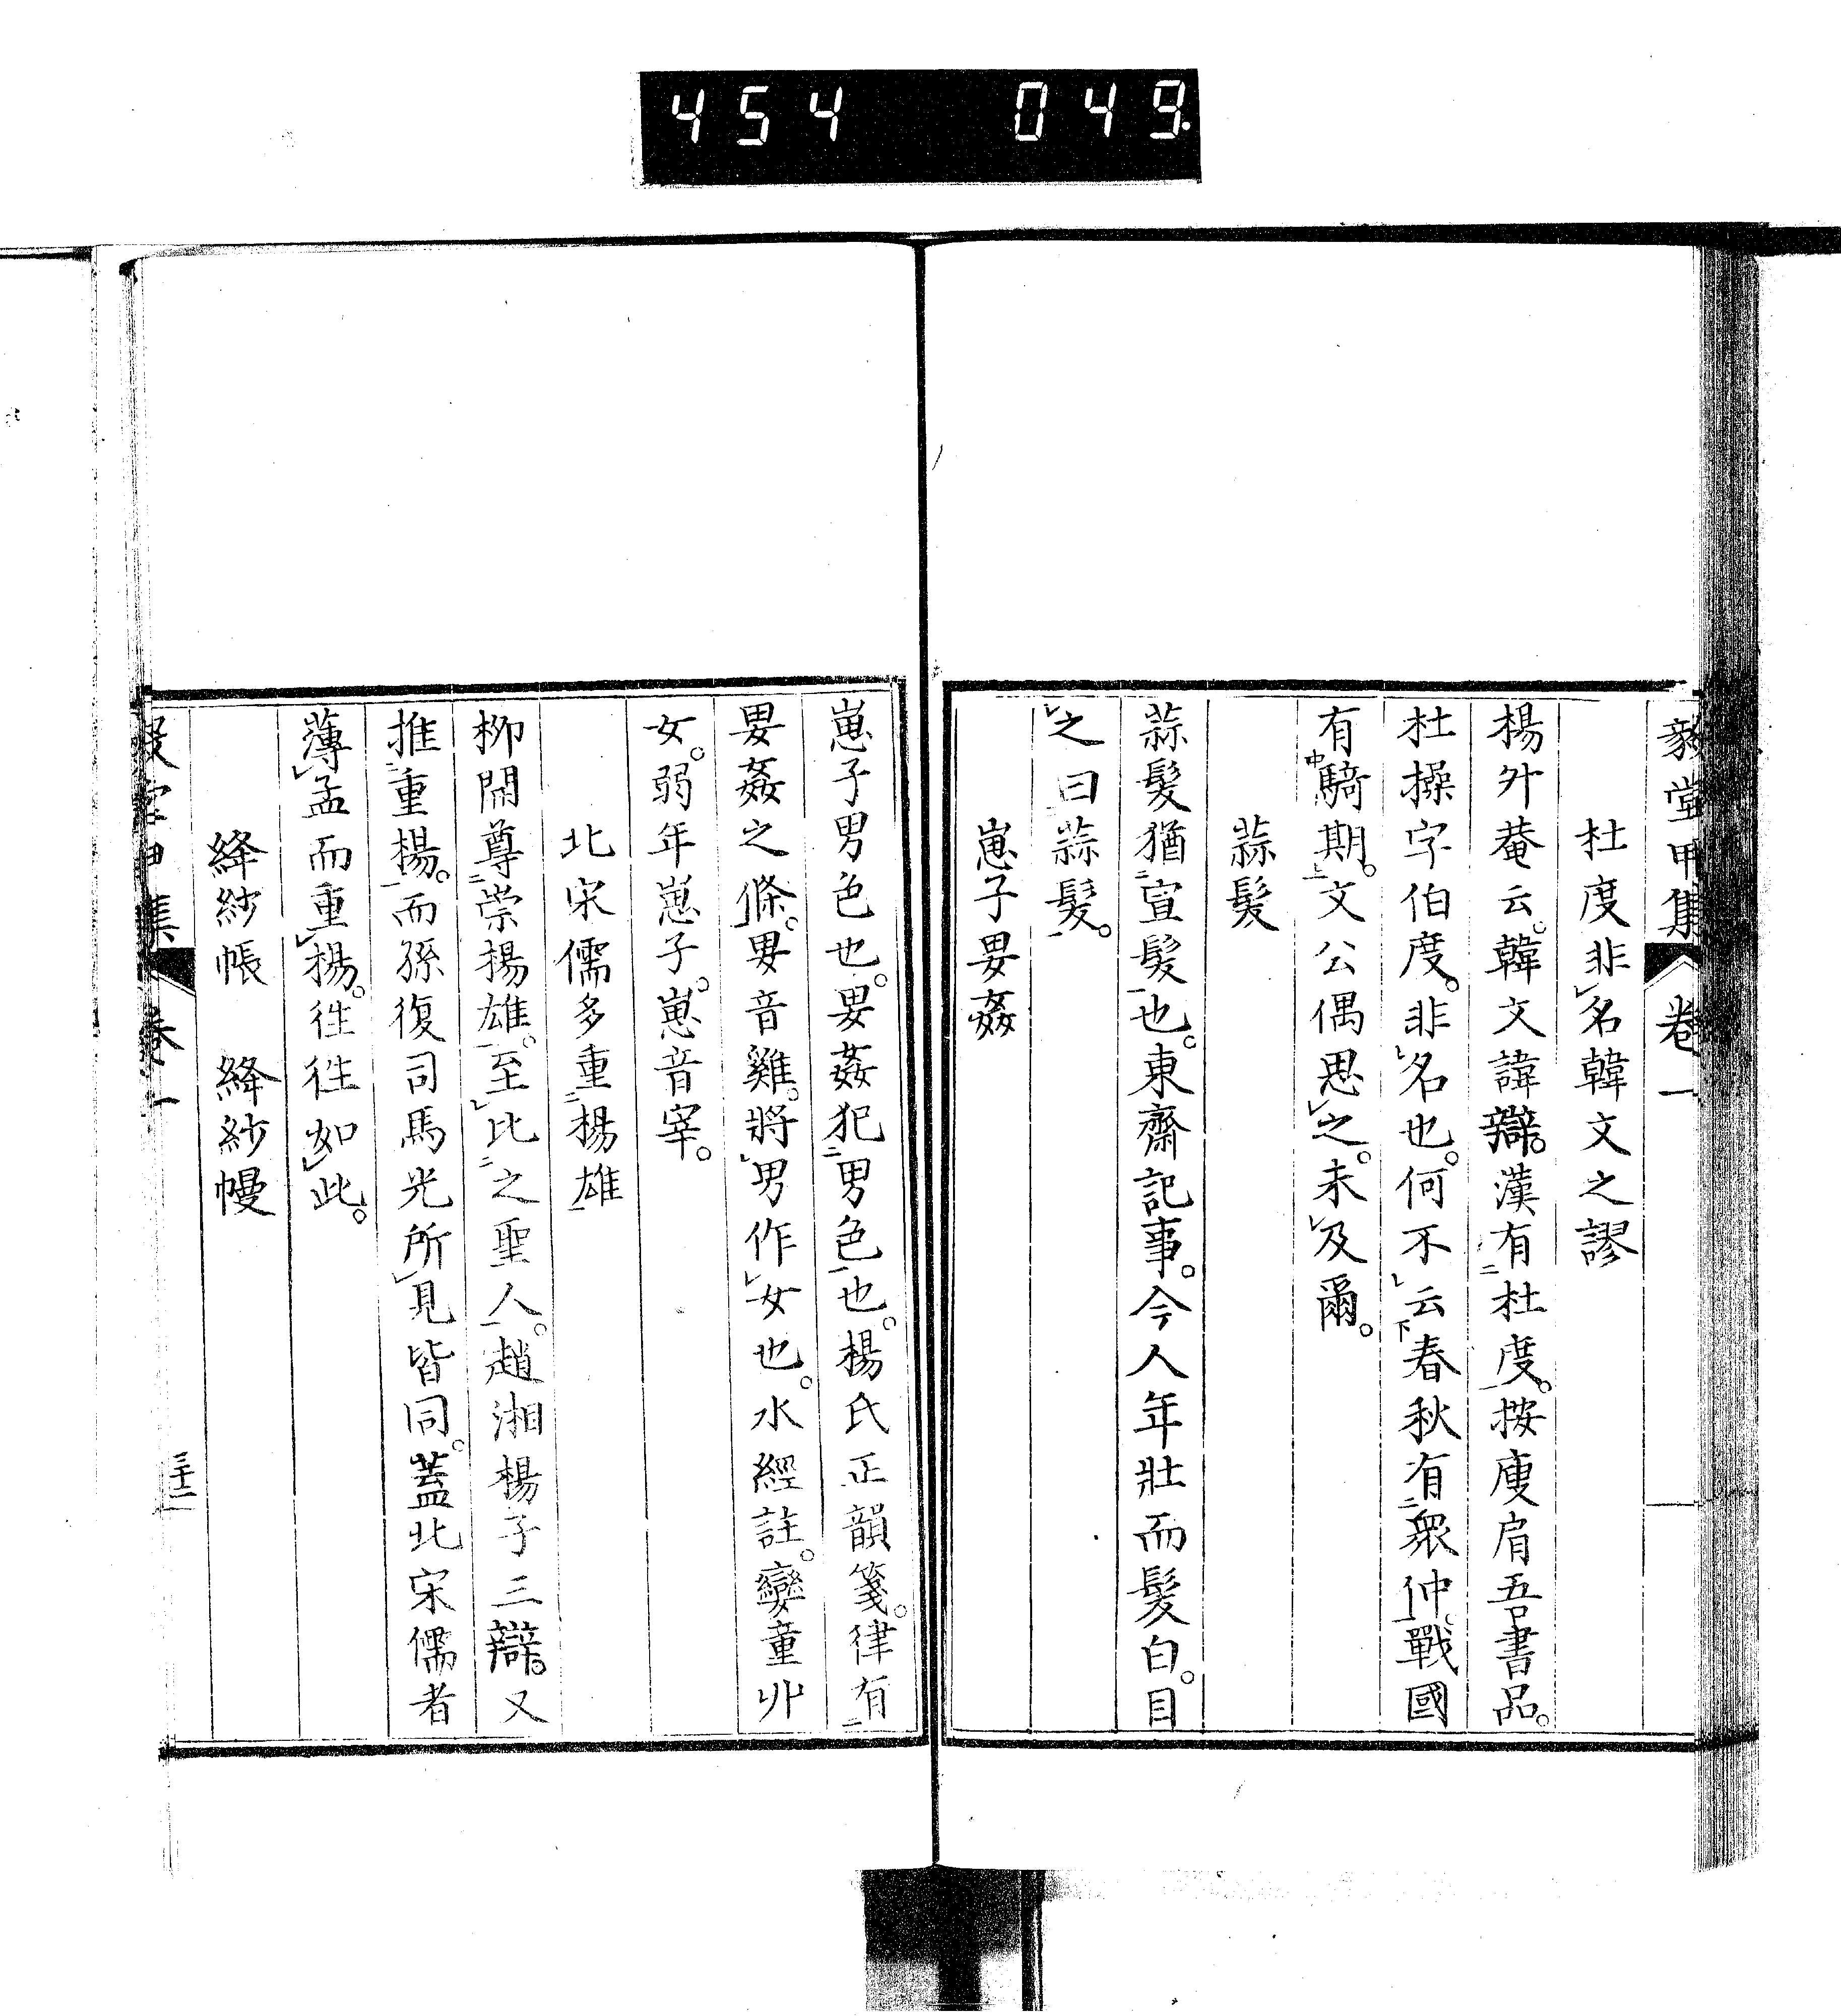 454 049
毅堂甲集 卷一
杜度非名韓文之謬
楊升菴云。韓文諱辯。漢有杜度。按庾肩吾書品。
杜操字伯度。非名也。何不云春秋有衆仲。戰國
有騎期。文公偶思之。未及爾。
蒜髮
蒜髮猶宣髮也。東齋記事。今人年壯而髮白。目
之曰蒜髮。
崽子㚻姦
崽子男色也。㚻姦犯男色也。楊氏正韻箋。律有
㚻姦之條。㚻音雞。將男作女也。水經註。孌童丱
女。弱年崽子。崽音宰。
北宋儒多重楊雄
柳開尊崇揚雄。至比之聖人。趙湘楊子三辯。又
推重楊。而孫復司馬光所見皆同。蓋北宋儒者
薄孟而重揚。往往如此。
絳紗帳 絳紗幔
毅堂甲集 卷一 三十二